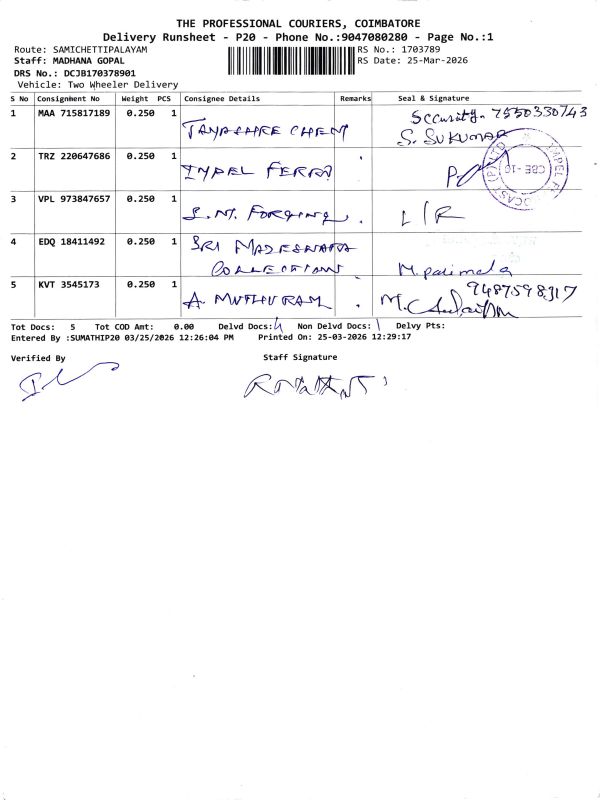 THE PROFESSIONAL COURIERS, COIMBATORE
Delivery Runsheet - P20 - Phone No.:9047080280 - Page No.:1
Route: SAMICHETTIPALAYAM
RS No.: 1703789
Staff: MADHANA GOPAL
RS Date: 25-Mar-2026
DRS No.: DCJB170378901
Vehicle: Two Wheeler Delivery
S No Consignment No Weight PCS Consignee Details Remarks Seal & Signature
1 MAA 715817189 0.250 1 Security. 7550330743
S. SUKUMAR
2 TRZ 220647686 0.250 1 IMPEL FERRO
3 VPL 973847657 0.250 1 S.M. FORGING. L/R
4 EDQ 18411492 0.250 1 SRI MADESWARA
COLLECTION M. parimala
5 KVT 3545173 0.250 1 A. MUTHURAM 9487598317
Tot Docs: 5 Tot COD Amt: 0.00 Delvd Docs: 4 Non Delvd Docs: 1 Delvy Pts:
Entered By :SUMATHIP20 03/25/2026 12:26:04 PM Printed On: 25-03-2026 12:29:17
Verified By Staff Signature